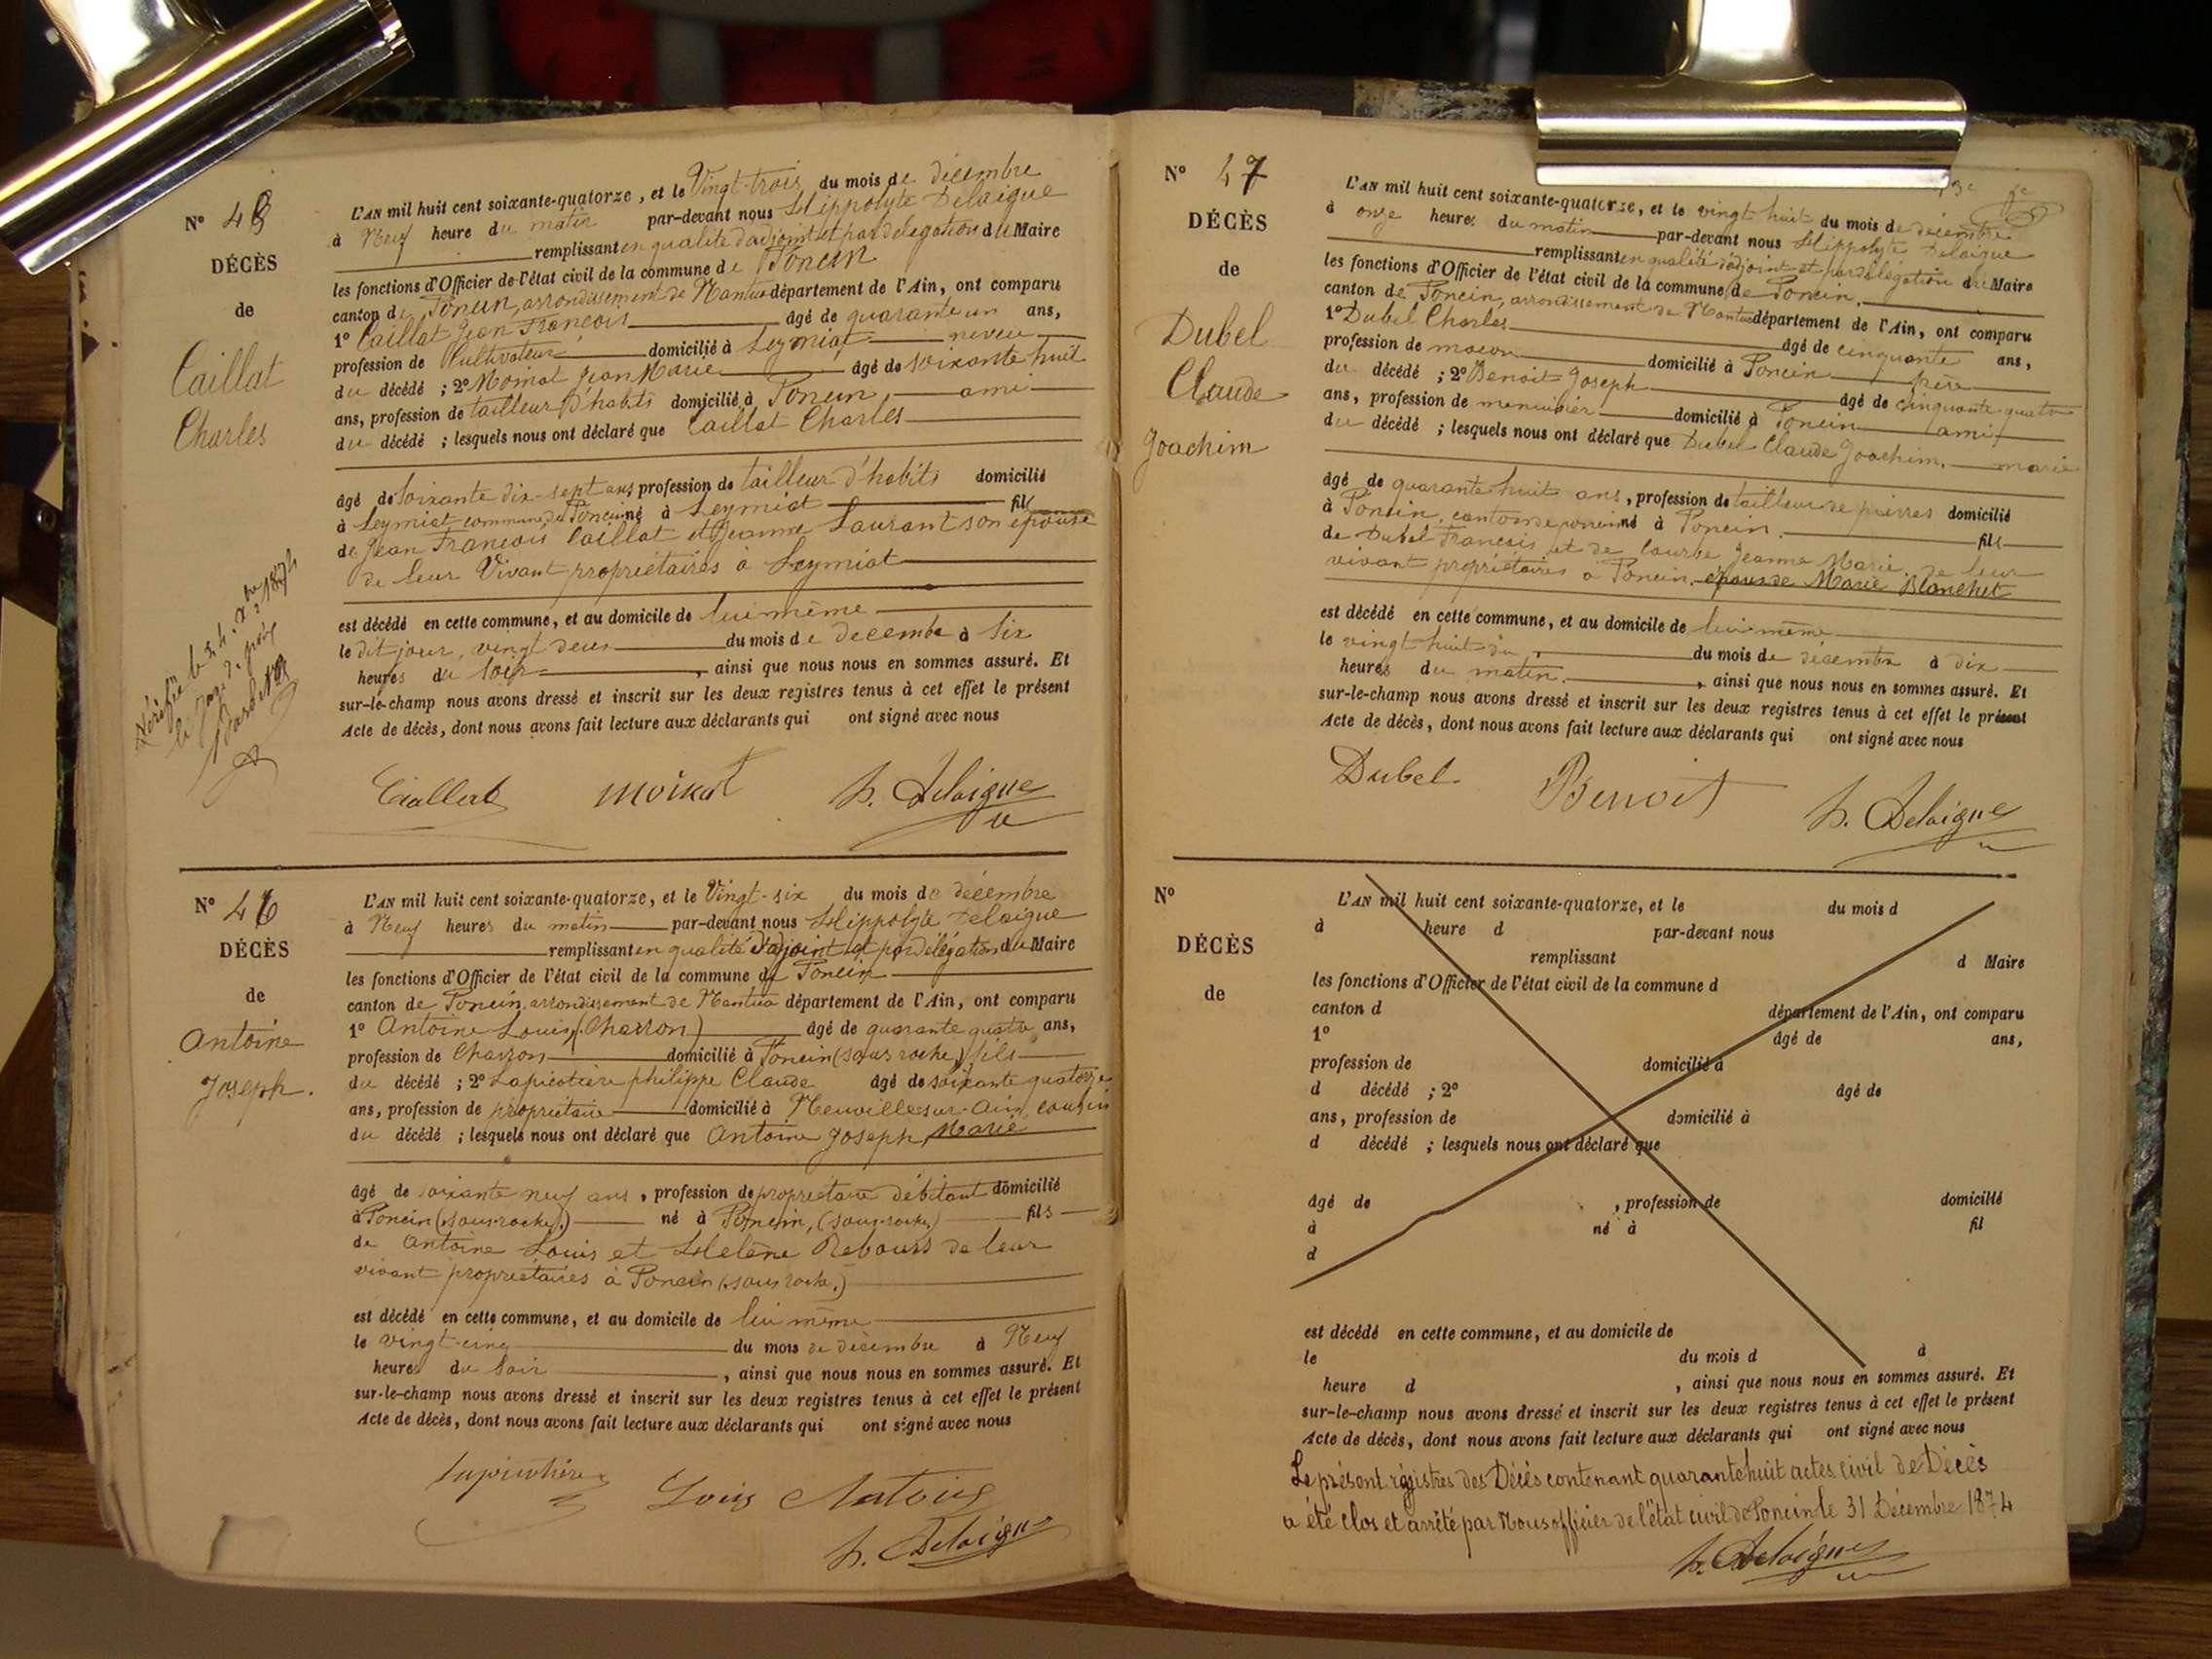 N° 48
DÉCÈS
de
Caillat
Charles
L'AN mil huit cent soixante-quatorze, et le Vingt-trois du mois de décembre
à Neuf heure du matin par-devant nous Hippolyte Delaigue
remplissant en qualité d'adjoint et par délégation du Maire
les fonctions d'Officier de l'état civil de la commune de Poncin
canton de Poncin, arrondissement de Nantua département de l'Ain, ont comparu
1° Caillat Jean François âgé de quarante un ans,
profession de Cultivateur domicilié à Leymiat neveu
du décédé ; 2° Moinat Jean Marie âgé de soixante huit
ans, profession de tailleur d'habits domicilié à Poncin ami
du décédé ; lesquels nous ont déclaré que Caillat Charles
âgé de soixante dix-sept ans profession de tailleur d'habits domicilié
à Leymiat commune de Poncin né à Leymiat fils
de Jean François Caillat et Jeanne Laurant son épouse
de leur Vivant propriétaires à Leymiat
est décédé en cette commune, et au domicile de lui même
le dit jour, vingt deux du mois de décembre à Six
heures du soir , ainsi que nous nous en sommes assuré. Et
sur-le-champ nous avons dressé et inscrit sur les deux registres tenus à cet effet le présent
Acte de décès, dont nous avons fait lecture aux déclarants qui ont signé avec nous
Vérifié le 24 Xbre 1874
le Juge de paix
Caillat Moinat h. Delaigue
N° 46
DÉCÈS
de
Antoine
Joseph.
L'AN mil huit cent soixante-quatorze, et le Vingt-six du mois de décembre
à Neuf heures du matin par-devant nous Hippolyte Delaigue
remplissant en qualité d'adjoint et par délégation du Maire
les fonctions d'Officier de l'état civil de la commune de Poncin
canton de Poncin, arrondissement de Nantua département de l'Ain, ont comparu
1° Antoine Louis, (Charron) âgé de quarante quatre ans,
profession de Charron domicilié à Poncin (sous roche) fils
du décédé ; 2° Lapicotière philippe Claude âgé de soixante quatorze
ans, profession de propriétaire domicilié à Neuville sur-Ain, cousin
du décédé ; lesquels nous ont déclaré que Antoine Joseph, Marié
âgé de soixante neuf ans , profession de propriétaire débitant domicilié
à Poncin (sous-roche.) né à Poncin, (sous-roche) fils
de Antoine Louis et Hélène Rebours de leur
vivant propriétaires à Poncin (sous roche.)
est décédé en cette commune, et au domicile de lui même
le vingt-cinq du mois de décembre à Neuf
heures du Soir , ainsi que nous nous en sommes assuré. Et
sur-le-champ nous avons dressé et inscrit sur les deux registres tenus à cet effet le présent
Acte de décès, dont nous avons fait lecture aux déclarants qui ont signé avec nous
Lapicotière Louis Antoine
h. Delaigue
N° 47
DÉCÈS
de
Dubel
Claude
Joachim
L'AN mil huit cent soixante-quatorze, et le vingt huit du mois de décembre
à onze heures du matin par-devant nous Hippolyte Delaigue
remplissant en qualité d'adjoint et par délégation du Maire
les fonctions d'Officier de l'état civil de la commune de Poncin.
canton de Poncin, arrondissement de Nantua département de l'Ain, ont comparu
1° Dubel Charles âgé de cinquante ans,
profession de maçon domicilié à Poncin frère
du décédé ; 2° Benoit Joseph âgé de cinquante quatre
ans, profession de menuisier domicilié à Poncin ami
du décédé ; lesquels nous ont déclaré que Dubel Claude Joachim. marié
âgé de quarante huit ans , profession de tailleur de pierres domicilié
à Poncin, canton de poncin né à Poncin. fils
de Dubel François et de Courbe Jeanne Marie. de leur
vivant propriétaires à Poncin. époux de Marie Blanchet
est décédé en cette commune, et au domicile de lui-même
le vingt huit du du mois de décembre à dix
heures du matin. , ainsi que nous nous en sommes assuré. Et
sur-le-champ nous avons dressé et inscrit sur les deux registres tenus à cet effet le présent
Acte de décès, dont nous avons fait lecture aux déclarants qui ont signé avec nous
Dubel Benoit h. Delaigue
N°
DÉCÈS
de
L'AN mil huit cent soixante-quatorze, et le du mois d
à heure d par-devant nous
remplissant d Maire
les fonctions d'Officier de l'état civil de la commune d
canton d département de l'Ain, ont comparu
1° âgé de ans,
profession de domicilié à
d décédé ; 2° âgé de
ans, profession de domicilié à
d décédé ; lesquels nous ont déclaré que
âgé de , profession de domicilié
à né à fil
d
est décédé en cette commune, et au domicile de
le du mois d à
heure d , ainsi que nous nous en sommes assuré. Et
sur-le-champ nous avons dressé et inscrit sur les deux registres tenus à cet effet le présent
Acte de décès, dont nous avons fait lecture aux déclarants qui ont signé avec nous
Le présent régistres des Décès contenant quarante huit actes civil de Décès
a été clos et arrêté par Nous officier de l'état civil de Poncin le 31 Décembre 1874
h. Delaigue